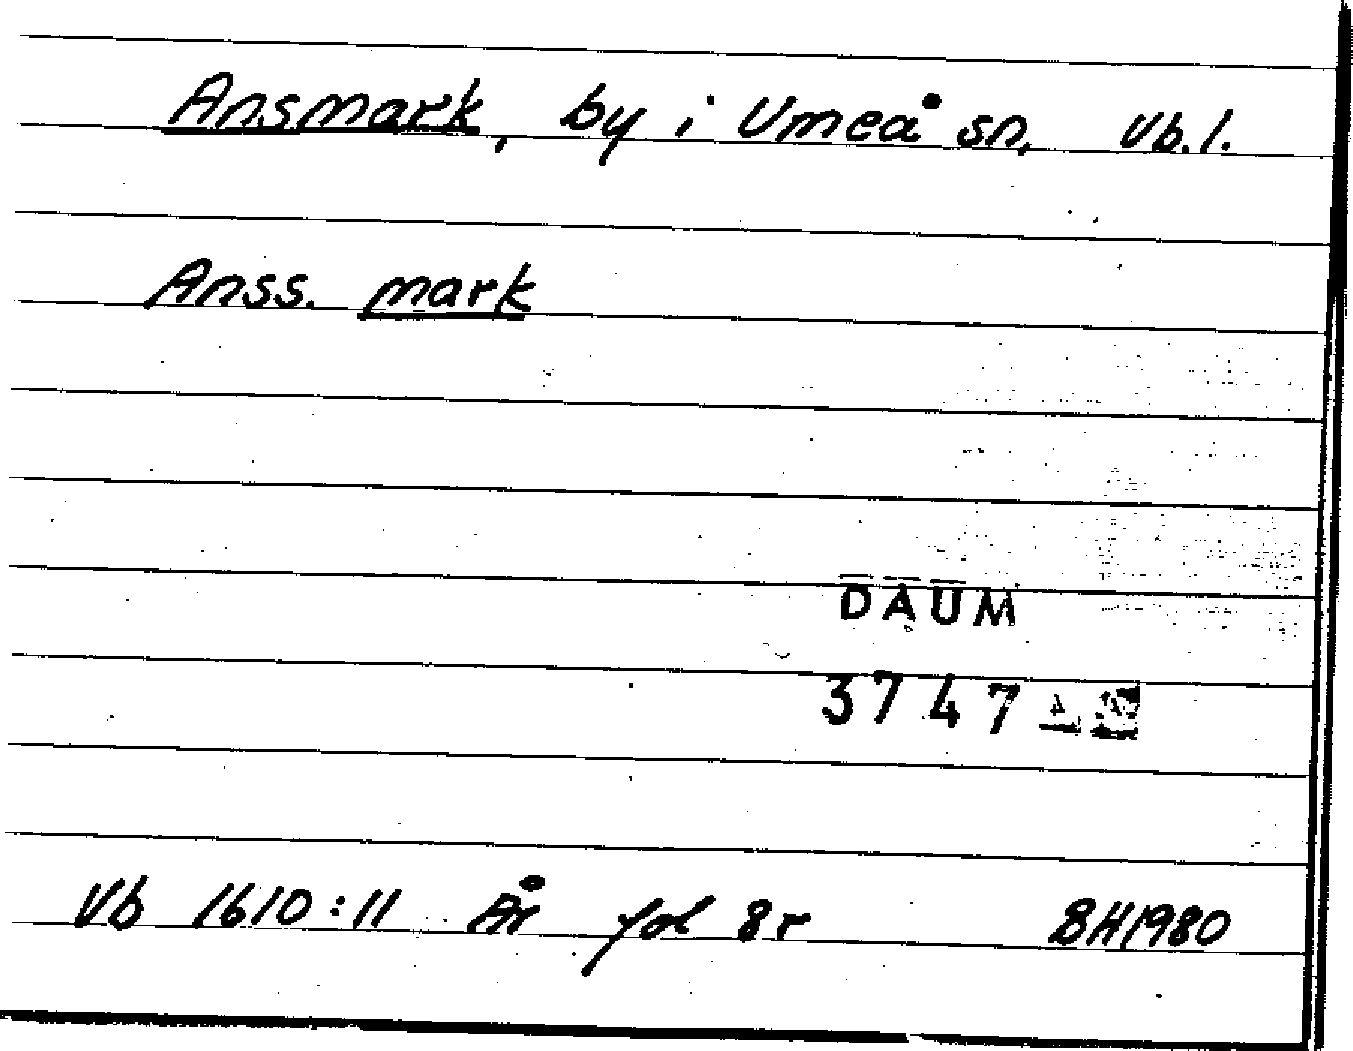 Ansmark, by i Umeå sn, Vb.l.
Anss. mark
DAUM
3747
Vb 1610:11 År fol 8r BH1980